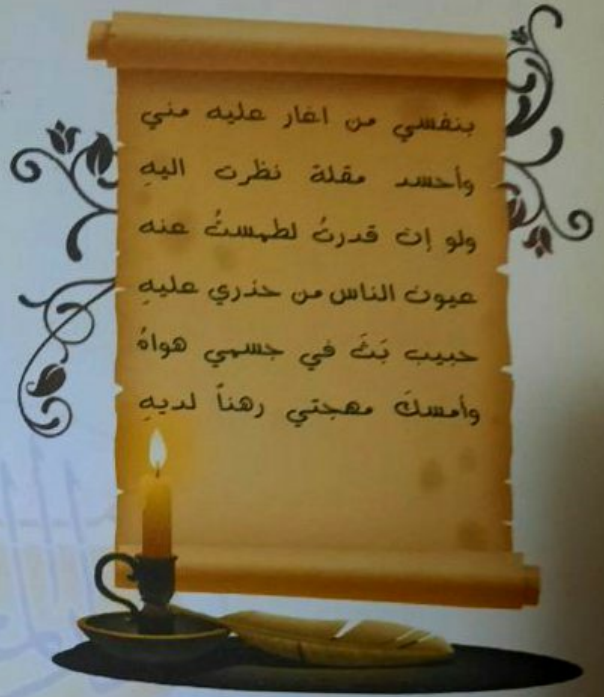 بنفسي من اغار عليه مني
وأحسد مقلة نظرت اليهِ
ولو إن قدرتُ لطمستُ عنه
عيون الناس من حذري عليهِ
حبيب بَثَ في جسمي هواهُ
وأمسكَ مهجتي رهناً لديهِ